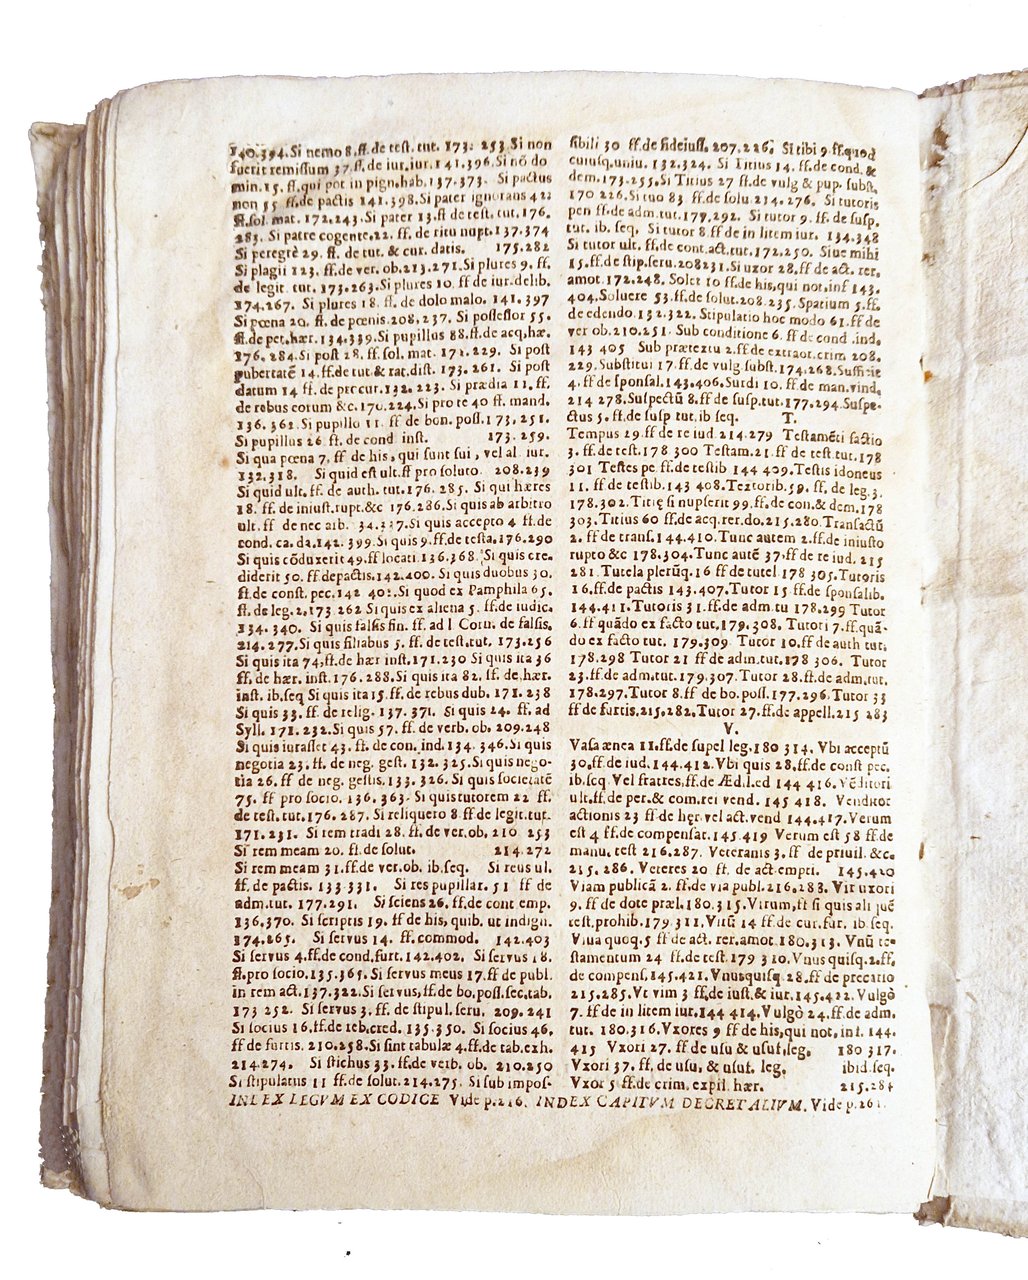 140.394.Si nemo 8.ff.de test. tut. 173. 253 Si non
fuerit remissum 37.ff.de iur.iur. 141.396.Si nō do
min.15. ff.qui pot in pign.hab.137.373. Si pactus
non 55 ff.de pactis 141.398.Si pater ignorans 42
ff.sol. mat. 172.243.Si pater 13.ff de test. tut.176.
283. Si patre cogente.22. ff. de ritu nupt.137.374
Si peregrè 29. ff. de tut. & cur. datis. 175.282
Si plagii 123. ff.de ver. ob.213.271.Si plures 9. ff.
de legit. tut. 173.263.Si plures 10. ff de iur.delib.
174.267. Si plures 18. ff. de dolo malo. 141.397
Si pœna 20. ff. de pœnis.208.237. Si possessor 55.
ff.de pet.hær. 134.339.Si pupillus 88.ff.de acq.hæ.
176. 284.Si post 28. ff. sol. mat. 172.229. Si post
pubertatē 14.ff.de tut & rat.dist. 173.261. Si post
datum 14 ff. de pro cur.132.223. Si prædia 11. ff.
de rebus eorum &c. 170.224.Si pro te 40 ff. mand.
136. 362.Si pupillo 11. ff de bon. poss.173.251.
Si pupillus 26 ff. de cond inst. 173.259.
Si qua pœna 7. ff de his, qui sunt sui, vel al. iur.
132.318. Si quid est ult.ff pro soluto 208.239
Si quid ult. ff. de auth. tut.176. 285. Si qui hæres
18. ff. de iniust. rupt.&c 176.286.Si quis ab arbitro
ult. ff de nec arb. 34.337.Si quis accepto 4 ff.de
cond. ca. da.142. 399.Si quis 9.ff.de testa.176.290
Si quis cōduxerit 49.ff locati 136.368. Si quis cre.
diderit 50. ff.de pactis.142.400. Si quis duobus 30.
ff.de const. pec.142 401. Si quod ex Pamphila 65.
ff. de leg. 2.173 262 Si quis ex aliena 5. ff.de iudic.
134. 340. Si quis falsis fin. ff. ad l Corn. de falsis.
214.277.Si quis filiabus 5. ff. de test.tut. 173.256
Si quis ita 74.ff.de hær inst.171.230 Si quis ita 36
ff. de hær. inst. 176.288.Si quis ita 82. ff. de hær.
inst. ib.seq Si quis ita 15.ff. de rebus dub. 171.238
Si quis 33. ff. de relig. 137. 371. Si quis 24. ff. ad
Syll. 171.232.Si quis 57. ff. de verb. ob. 209.248
Si quis iurasset 43. ff. de con. ind. 134. 346.Si quis
negotia 23. ff. de neg. gest. 132. 325.Si quis nego-
tia 26. ff de neg. gestis.133.326. Si quis societatē
75. ff pro socio. 136. 363. Si quis tutorem 22 ff.
de test. tut.176. 287. Si reliquero 8 ff de legit.tut.
171.231. Si rem tradi 28. ff. de ver.ob. 210 253
Si rem meam 20. ff. de solut. 214.272
Si rem meam 31.ff.de ver.ob. ib.seq. Si reus ul.
ff. de pactis. 133.331. Si res pupillar. 51 ff de
adm.tut. 177.291. Si sciens 26. ff.de cont emp.
136.370. Si scriptis 19. ff de his, quib. ut indign.
174.265. Si servus 14. ff.commod. 142.403
Si servus 4.ff.de cond.furt. 142.402. Si servus 18.
ff.pro socio.135.365. Si servus meus 17.ff de publ.
in rem act.137.322.Si servus,ff.de bo.poss.sec.tab.
173 252. Si servus 3. ff. de stipul. seru. 209.241
Si socius 16.ff.de reb.cred. 135.350. Si socius 46.
ff de furtis. 210.258.Si sint tabulæ 4.ff.de tab.exh.
214.274. Si stichus 33. ff.de verb. ob. 210.250
Si stipulatus 11 ff.de solut. 214.275. Si sub impos-
sibili 30 ff.de fideiuss. 207.226. Si tibi 9.ff.quod
cuiusq.uniu. 132.324. Si Titius 14. ff.de cond. &
dem.173.255.Si Titius 27 ff.de vulg & pup. subst.
170 226.Si tuo 83 ff.de solu 214.276. Si tutoris
pen ff.de adm.tut.177.292. Si tutor 9. ff. de susp.
tut. ib. seq. Si tutor 8 ff de in litem iur. 134.348
Si tutor ult. ff.de cont.act.tut.172.250. Siue mihi
15.ff.de stip.seru.208231.Si uxor 28.ff de act. rer.
amot.172.248. Solet 10 ff.de his,qui not.inf 143.
404.Soluere 53.ff.de solut.208.235. Spatium 5.ff.
de edendo.132.322. Stipulatio hoc modo 61.ff de
ver ob.210.251. Sub conditione 6. ff de cond .ind.
143 405 Sub prætextu 2.ff.de extraor.crim 208.
229.Substitui 17.ff.de vulg.subst.174.268.Sufficit
4. ff de sponsal.143.406.Surdi 10. ff de man.vind.
214 278.Suspectū 8.ff de susp.tut.177.294.Suspe-
ctus 5. ff.de susp tut.ib seq. T.
Tempus 29.ff de re iud. 214.279 Testamēti factio
3. ff.de test.178 300 Testam.21. ff de test.tut.178
301 Testes pe. ff.de testib 144 409.Testis idoneus
11. ff de testib.143 408.Textorib.59. ff. de leg.3.
178.302. Titię si nupserit 99.ff.de con.& dem.178
303.Titius 60 ff.de acq.rer.do.215.280.Transactū
2. ff de trans.144.410.Tunc autem 2.ff.de iniusto
rupto &c 178.304.Tunc autē 37.ff de re iud. 215
281.Tutela plerūq.16 ff de tutel 178 305.Tutoris
16.ff.de pactis 143.407.Tutor 15 ff.de sponsalib.
144.411.Tutoris 31.ff.de adm.tu 178.299 Tutor
6.ff quādo ex facto tut.179.308. Tutori 7.ff.quā-
do ex facto tut. 179.309 Tutor 10.ff de auth tut.
178.298 Tutor 21 ff de adm.tut.178 306. Tutor
23.ff de adm.tut.179.307.Tutor 28.ff.de adm.tut.
178.297.Tutor 8.ff de bo.poss.177.296.Tutor 33
ff de furtis.215.282.Tutor 27.ff.de appell.215 283
V.
Vasa ænea 11.ff.de supel leg.180 314. Vbi acceptū
30.ff.de iud. 144.412.Vbi quis 28.ff.de const pec.
ib.seq Vel fratres.ff.de Æd.l.ed 144 416.Vēditori
ult.ff.de per.& com.rei vend. 145 418. Venditor
actionis 23 ff de hęr.vel act.vend 144.417.Verum
est 4 ff.de compensat.145.419 Verum est 58 ff.de
manu. test 216.287. Veteranis 3. ff de priuil. &c.
215. 286. Veteres 20 ff. de act.empti. 145.420
Viam publicā 2. ff.de via publ.216.288. Vir uxori
9. ff de dote præl.180.315.Virum, & si quis ali quē
test.prohib.179.311.Virū 14 ff.de cur.fur. ib.seq.
Viua quoq.5 ff de act. rer.amot.180.313. Vnū te-
stamentum 24 ff.de test.179 310.Vnus quisq.2.ff.
de compens.145.421.Vnusquisq.28.ff de precario
215.285.Vt vim 3 ff.de iust.& iur.145.422. Vulgò
7. ff de in litem iur.144 414.Vulgò 24.ff.de adm.
tut. 180.316.Vxores 9 ff de his,qui not.inf. 144.
415 Vxori 27. ff de usu & usuf.leg. 180 317.
Vxori 37. ff. de usu. & usuf. leg. ibid.seq.
Vxor 5 ff.de crim. expil. hær. 215.284
INDEX LEGVM EX CODICE Vide p.216. INDEX CAPITVM DECRETALIVM. Vide p.261.